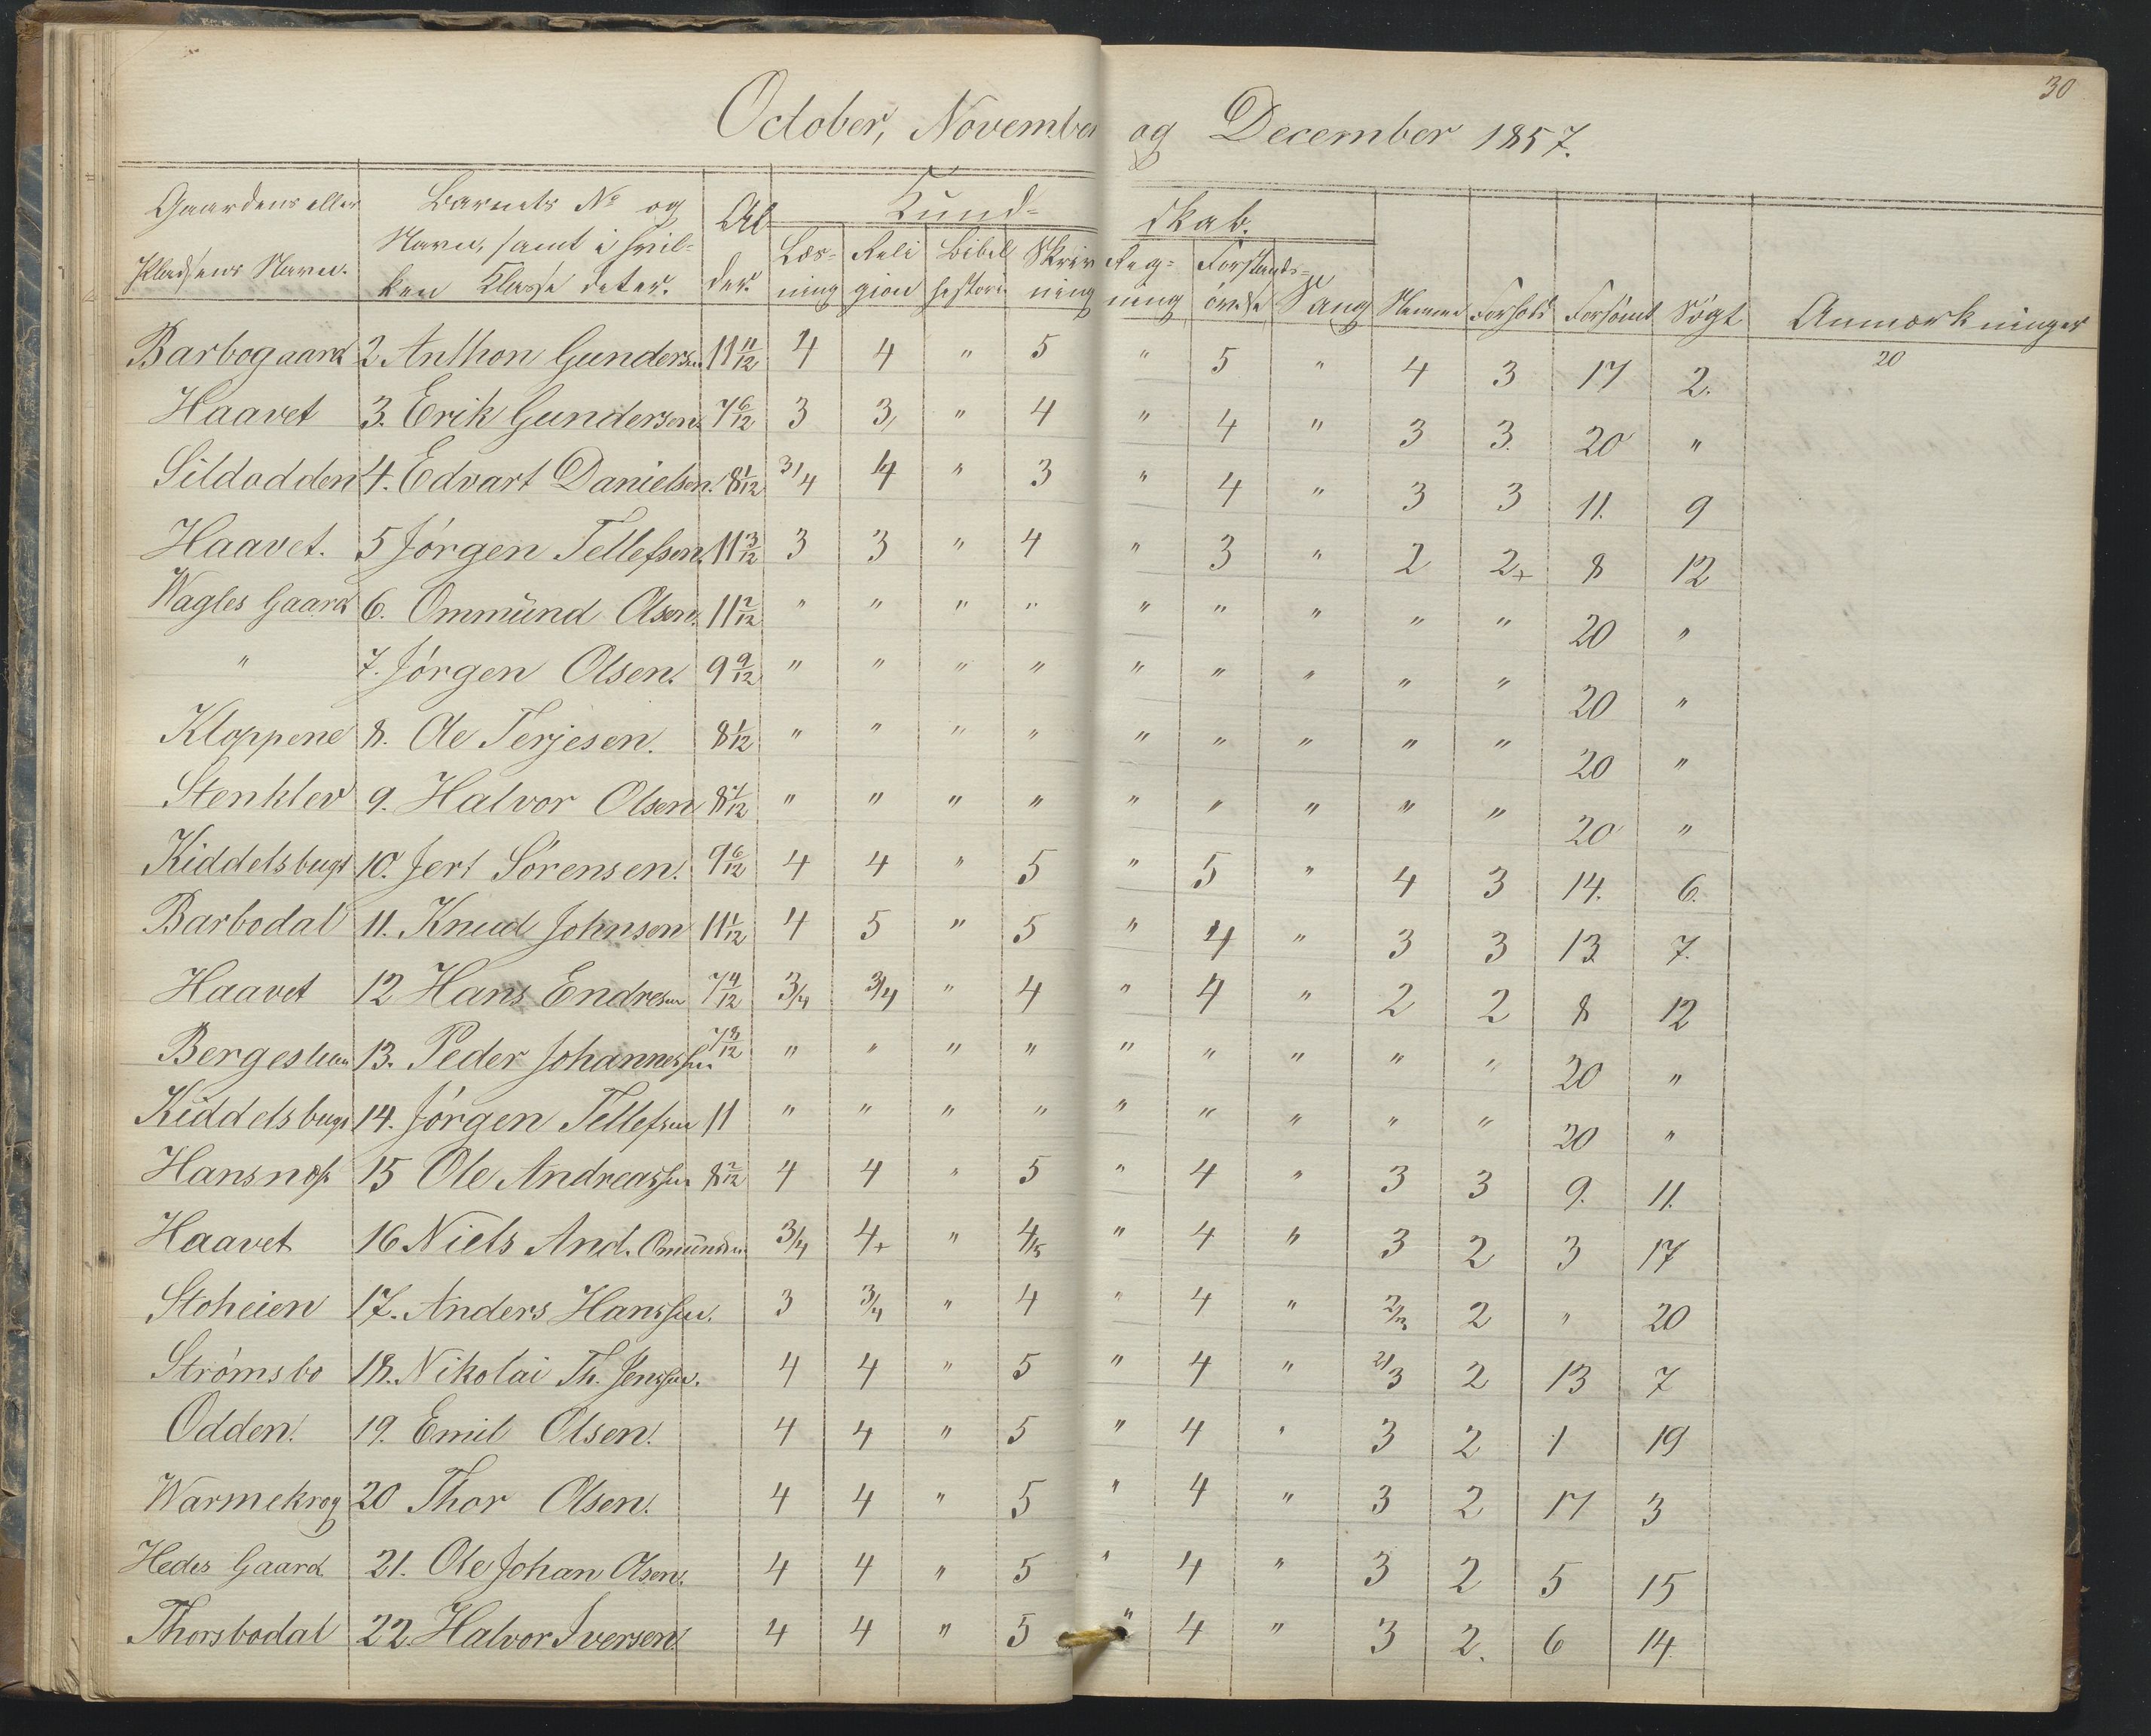 30
October, November og December 1857.
Gaardens eller Pladsens Navn. Barnets No og Navn, samt i hvilken Klasse det er. Alder. Kundskab. Læsning Religion Bibelhistorie Skrivning Regning Forstandsøvelse Sang Nemme Forhold Forsömt Sögt Anmærkninger
Barbogaard 2 Anthon Gundersen 11 11/12 4 4 " 5 " 5 " 4 3 17 2. 20
Haavet 3. Erik Gundersen. 7 6/12 3 3 " 4 " 4 " 3 3. 20 "
Sildodden 4. Edvart Danielsen. 8 1/12 3/4 4 " 3 " 4 " 3 3 11. 9
Haavet. 5 Jörgen Tellefsen. 11 3/12 3 3 " 4 " 3 " 2 2+ 8 12
Wagles Gaard 6. Ommünd Olsen. 11 2/12 " " " " " " " " " 20 "
" 7. Jörgen Olsen. 9 9/12 " " " " " " " " " 20 "
Kloppene 8. Ole Terjesen. 8 1/12 " " " " " " " " " 20 "
Stenklev 9. Halvor Olsen 8 1/12 " " " " " " " " " 20 "
Kiddelsbugt 10. Jert Sörensen. 9 6/12 4 4 " 5 " 5 " 4 3 14. 6.
Barbodal 11. Knud Johnsen 11 1/12 4 5 " 5 " 4 " 3 3 13 7.
Haavet 12 Hans Endresen 7 4/12 3/4 3/4 " 4 " 4 " 2 2 8 12
13. Peder Johannessen 7 8/12 " " " " " " " " " 20 "
Kiddelsbugt 14. Jörgen Tellefsen 11 " " " " " " " " " 20 "
Hansnæs 15 Ole Andreassen 8 2/12 4 4 " 5 " 4 " 3 3 9. 11.
Haavet 16 Niels And. Omündsen. 3/4 4+ " 4/5 " 4 " 3 2 3 17
Stoheien 17. Anders Hanssen. 3 3/4 " 4 " 4 " 2/3 2 " 20
Strömsbo 18. Nikolai Th. Jenssen. 4 4 " 5 " 4 " 2/3 2 13 7
Odden. 19. Emil Olsen. 4 4 " 5 " 4 " 3 2 1 19
Warmekrog 20 Thor Olsen. 4 4 " 5 " 4 " 3 2 17 3
Hedes Gaard 21. Ole Johan Olsen. 4 4 " 5 " 4 " 3 2 5 15
Thorsbodal 22. Halvor Iversen 4 4 " 5 " 4 " 3 2. 6 14.